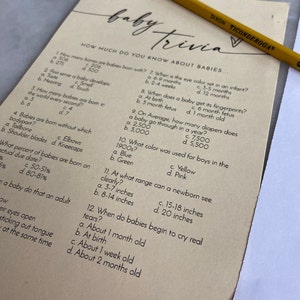 DIXON TICONDEROGA
baby
trivia
HOW MUCH DO YOU KNOW ABOUT BABIES
1. How many bones are babies born with?
a. 206
b. 275
c. 205
d. 300
sense a baby develops
a. Taste
b. Hearing
c. Smell
d. Touch
How many babies are born in
the world every second?
4. Babies are born without which
bodypart?
c. Elbows
b. Shoulder blades
d. Kneecaps
percent of babies are born on
actual due date?
c. 30-51%
d. 80-81%
a baby do that an adult
eyes open
sticking out tongue
at the same time
7. When is the eye color set in an infant?
a. At birth
b. 6 months
c. 3-6 months
d. 12 months
8. When does a baby get its fingerprints?
a. At birth
b. 3 month fetus
c. 6 month fetus
d. 1 month old
9. On Average, how many diapers does
a baby go through in a year?
a. 2,500
b. 5,000
c. 7,500
d. 3,000
10. What color was used for boys in the
1900s?
a. Blue
b. Green
c. Yellow
d. Pink
11. At what range can a newborn see
clearly?
a. 3-7 inches
b. 8-14 inches
c. 15-18 inches
d. 20 inches
12. When do babies begin to cry real
tears?
a. About 1 month old
b. At birth
c. About 1 week old
d. About 2 months old